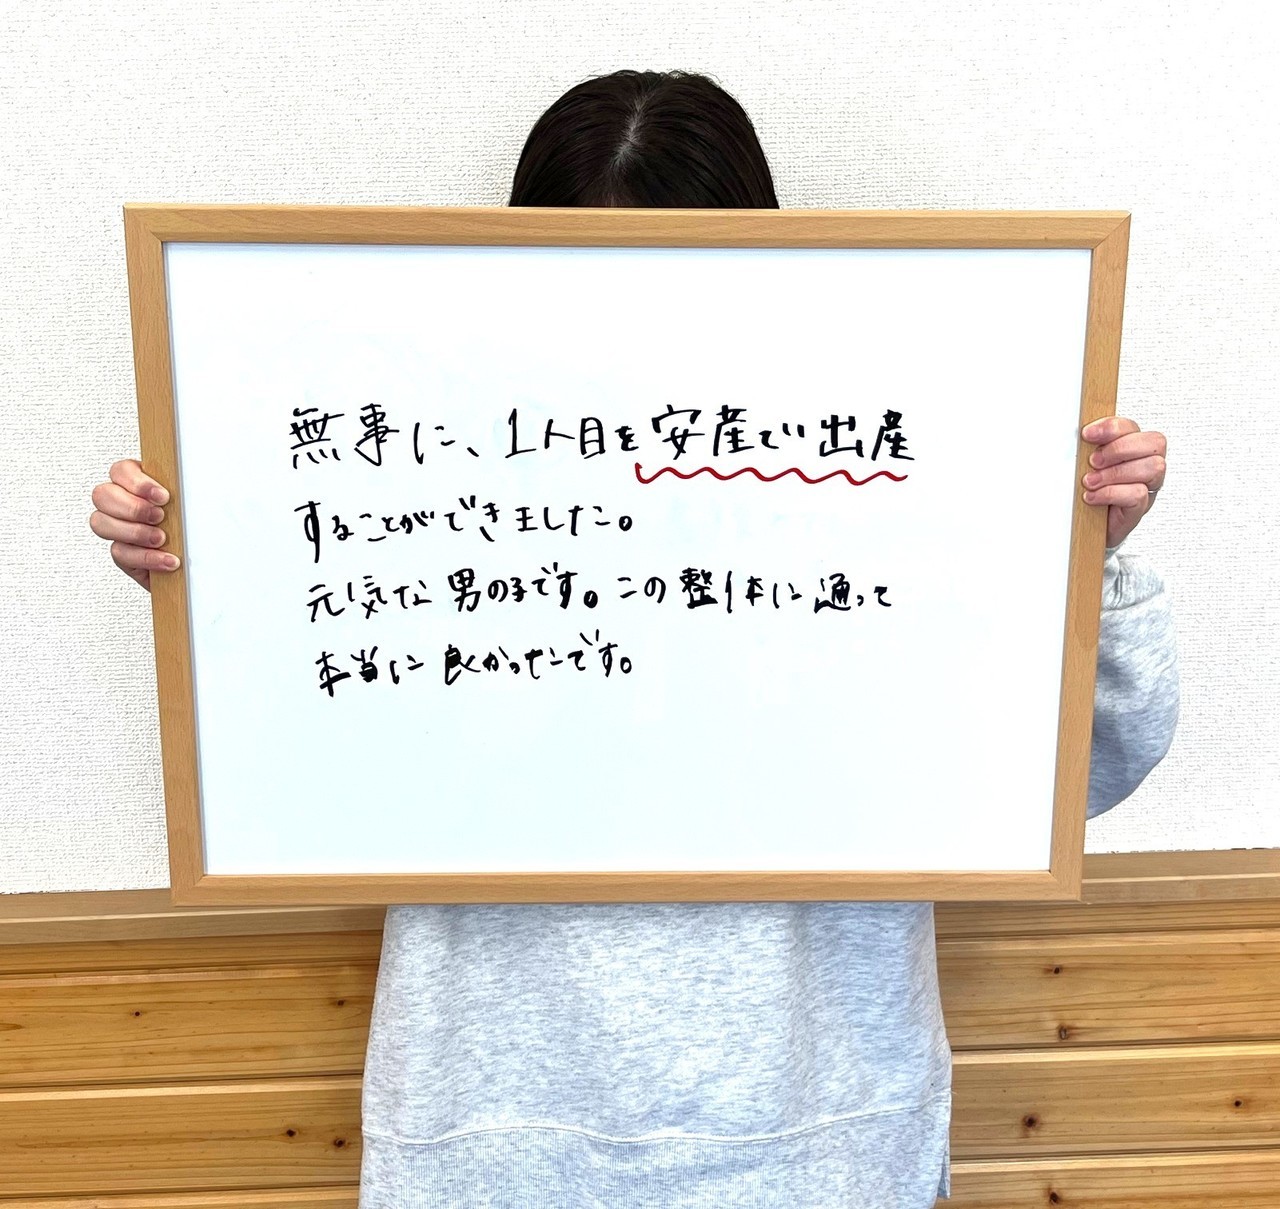 無事に、1人目を安産で出産
することができました。
元気な男の子です。この整体に通って
本当に良かったです。